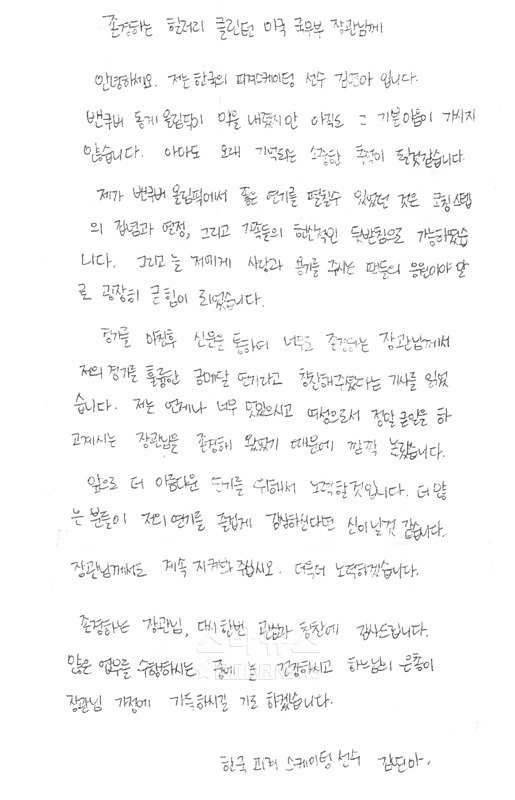 존경하는 힐러리 클린턴 미국 국무부 장관님께
안녕하세요. 저는 한국의 피겨스케이팅 선수 김연아 입니다.
밴쿠버 동계 올림픽이 막을 내렸지만 아직도 그 기쁨이 가시지
않습니다. 아마도 오래 기억되는 소중한 추억이 될것같습니다.
제가 밴쿠버 올림픽에서 좋은 연기를 펼칠수 있었던 것은 코칭스텝
의 집념과 열정, 그리고 가족들의 헌신적인 뒷받침으로 가능하였습
니다. 그리고 늘 저에게 사랑과 용기를 주시는 팬들의 응원이야 말
로 굉장히 큰 힘이 되었습니다.
경기를 마친후 신문을 통하여 너무도 존경하는 장관님께서
저의 경기를 훌륭한 금메달 연기라고 칭찬해주셨다는 기사를 읽었
습니다. 저는 언제나 너무 멋있으시고 여성으로서 정말 큰일을 하
고계시는 장관님을 존경해 왔었기 때문에 깜짝 놀랐습니다.
앞으로 더 아름다운 연기를 위해서 노력할것입니다. 더 많
은 분들이 저의 연기를 즐겁게 감상하신다면 신이날것 같습니다.
장관님께서도 계속 지켜봐 주십시오. 더욱더 노력하겠습니다.
존경하는 장관님, 다시한번 관심과 칭찬에 감사드립니다.
많은 업무를 수행하시는 중에 늘 건강하시고 하느님의 은총이
장관님 가정에 가득하시길 기도 하겠습니다.
한국 피겨 스케이팅 선수 김연아.
스타뉴스